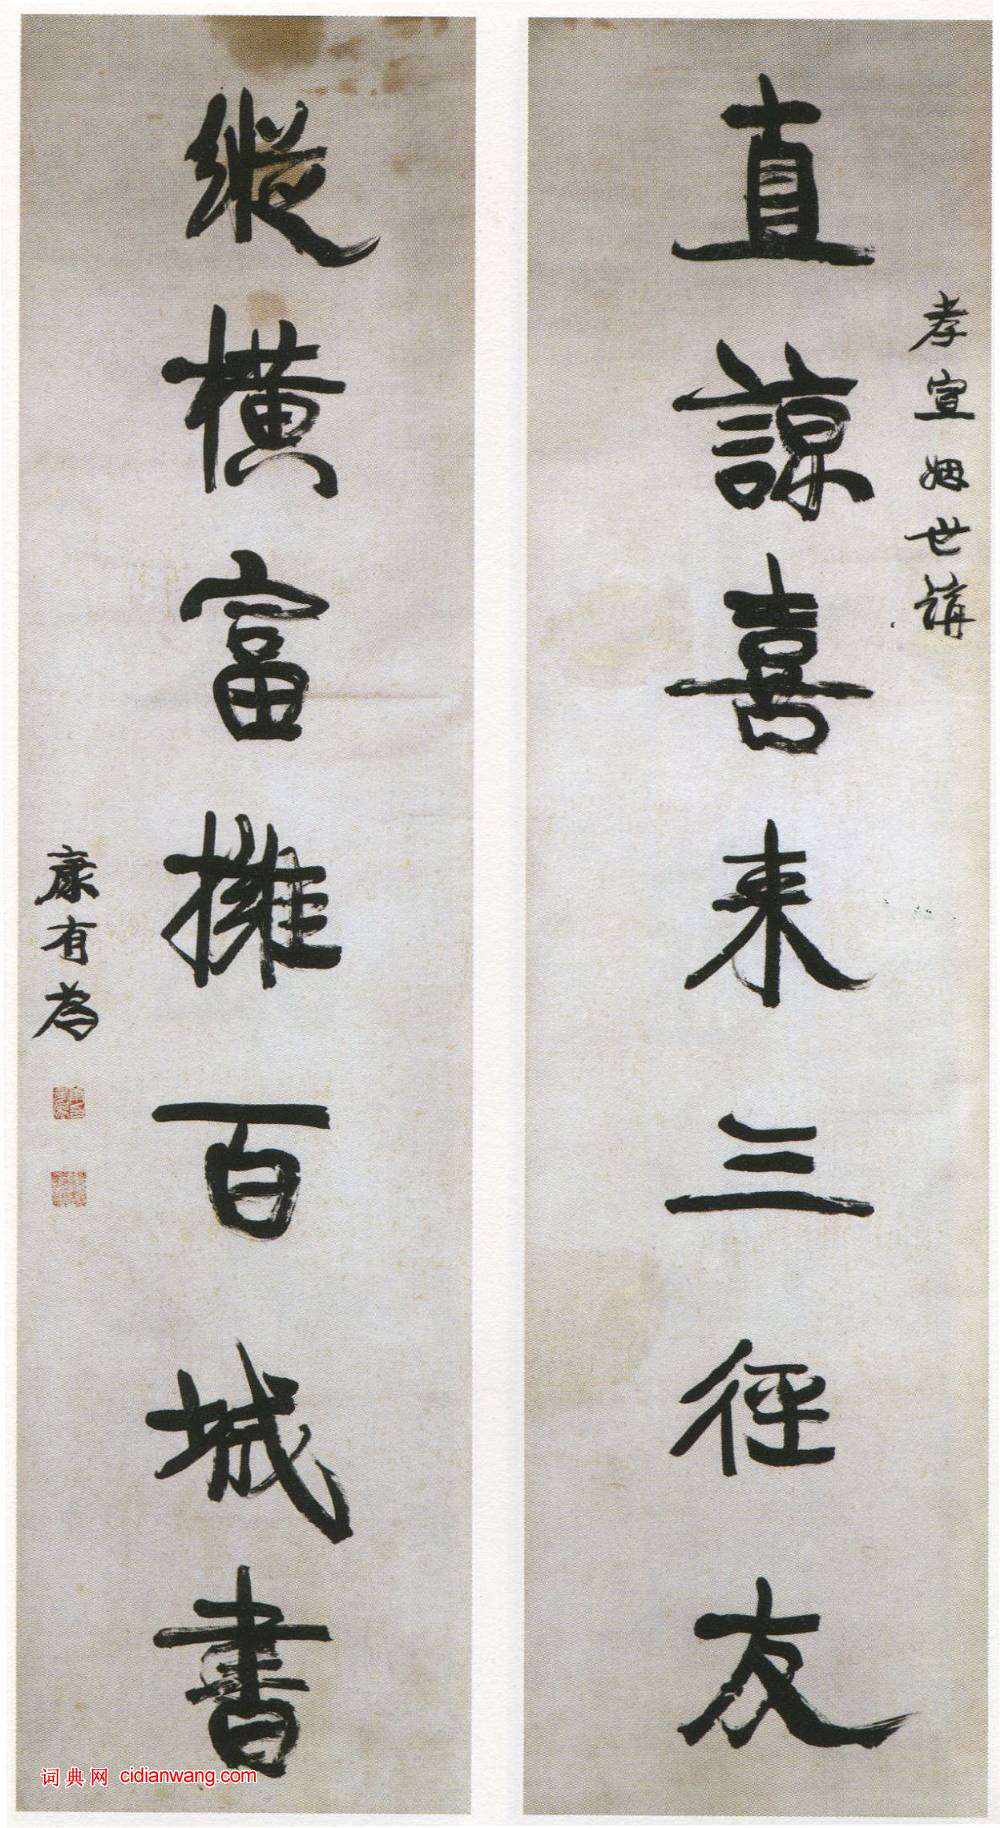 孝宣姻世講
直諒喜來三徑友
縱橫富擁百城書
康有為
词典网 cidianwang.com